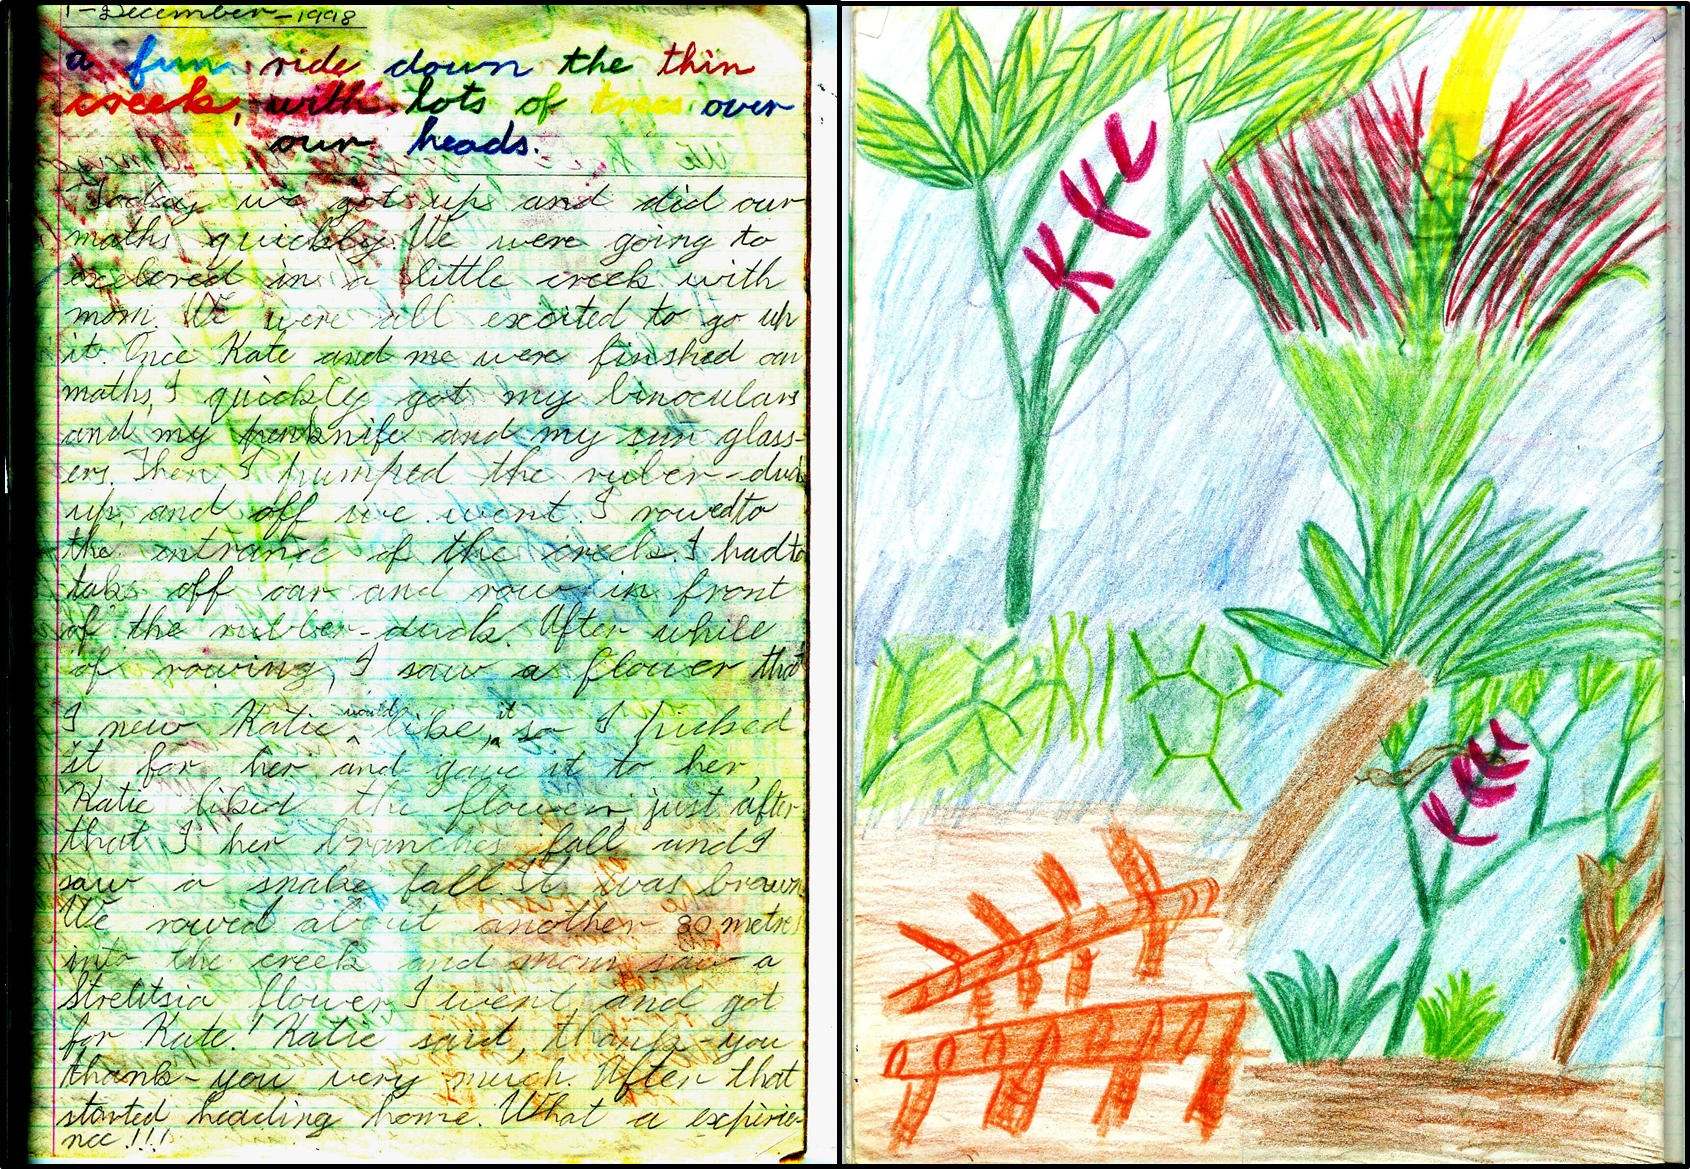 1-December-1998
a fun ride down the thin
creek, with lots of trees over
our heads.
Today we got up and did our
maths quickly. We were going to
exelored in a little creek with
mom. We were all excited to go up
it. Once Kate and me were finshed our
maths, I quickly got my binoculars
and my penknife and my sun glass-
ers. Then I pumped the ruber-duck
up, and off we went. I rowed to
the entrance of the creek. I had to
take off oar and row in front
of the rubber-duck. After while
of rowing, I saw a flower that
I new Katie would like it so I picked
it for her and gave it to her,
Katie liked the flower, just after
that I her branches fall and I
saw a snake fall. It was brown.
We rowed about another 30 metres
into the creek and mom saw a
Strelitsia flower, I went and got
for Kate. Katie said, thank-you
thank-you very much. After that
started heading home. What a experie-
nce!!!